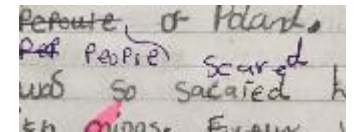 Peroute of Poland.
Pef PEOPlE) Scared
was so sacaied h